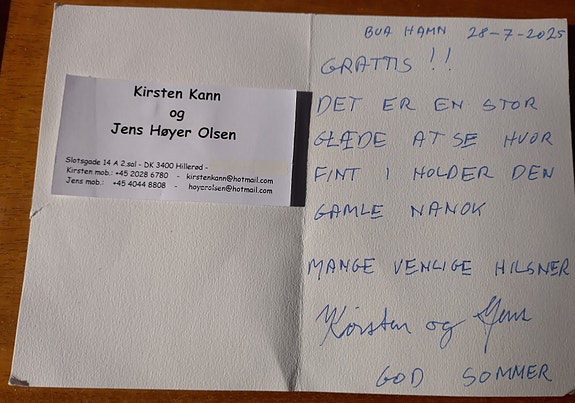 Kirsten Kann
og
Jens Høyer Olsen
Slotsgade 14 A 2.sal - DK 3400 Hillerød -
Kirsten mob.: +45 2028 6780 - kirstenkann@hotmail.com
Jens mob.: +45 4044 8808 - hoyerolsen@hotmail.com
BUA HAMN 28-7-2025
GRATTIS !!
DET ER EN STOR
GLÆDE AT SE HVOR
FINT I HOLDER DEN
GAMLE NANOK
MANGE VENLIGE HILSNER
Kirsten og Jens
GOD SOMMER